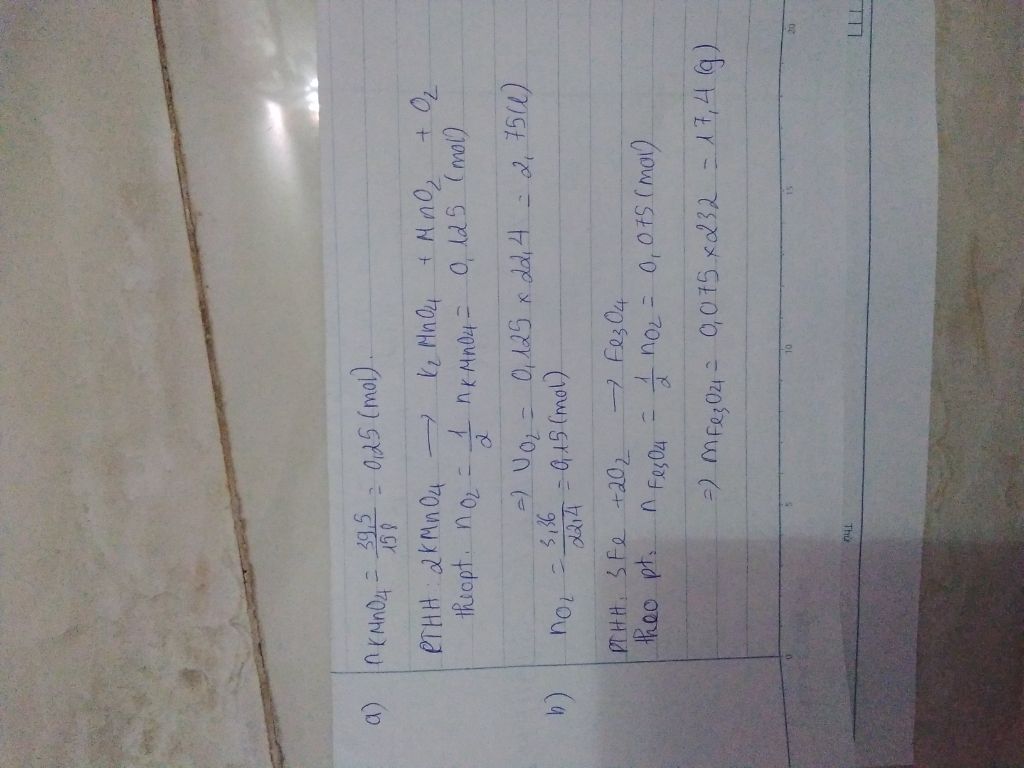 a) nKMnO4 = 39,5/158 = 0,25 (mol).
PTHH: 2KMnO4 → K2MnO4 + MnO2 + O2
theo pt. nO2 = 1/2 nKMnO4 = 0,125 (mol)
=> VO2 = 0,125 x 22,4 = 2,75(l)
b) nO2 = 3,36/22,4 = 0,15(mol)
PTHH. 3Fe + 2O2 → Fe3O4
theo pt. nFe3O4 = 1/2 nO2 = 0,075 (mol)
=> mFe3O4 = 0,075 x 232 = 17,4 (g)
0 5 10 15 20
Thứ